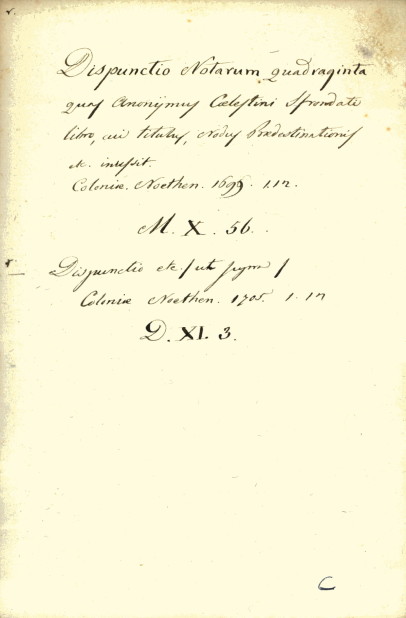 r.
Dispunctio Notarum quadraginta
quas Anonÿmus Cælestini Sfrondati
libro, cui titulus, Nodus Prædestinationis
etc. inussit.
Coloniæ. Noethen. 1699. 1.12.
M. X. 56.
r.
Dispunctio etc / ut supra /
Coloniæ Noethen. 1705. 1. 12
D. XI. 3.
C